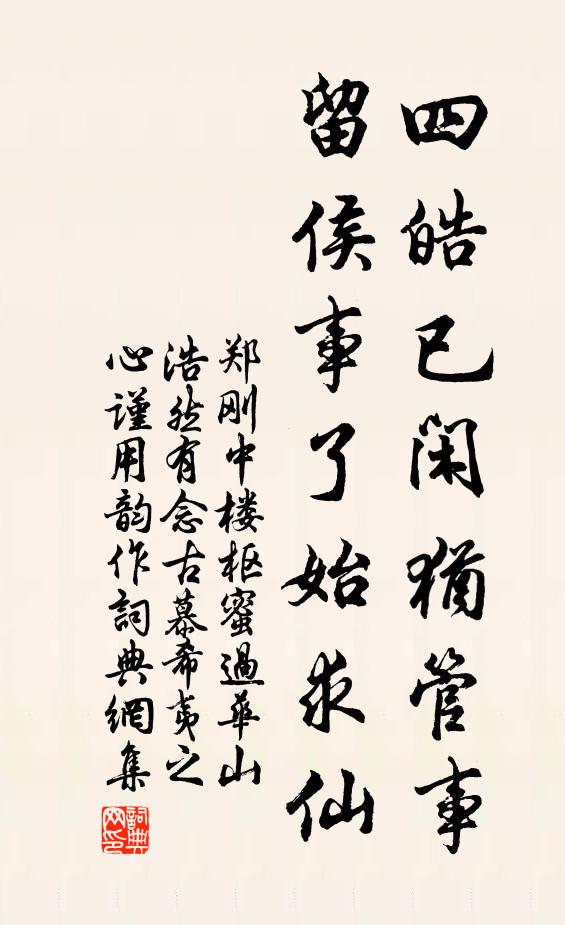 四皓已闲猶管事
留侯事了始求仙
郑刚中楼枢蜜過華山
浩然有念古慕希夷之
心謹用韵作詞典網集
詞典